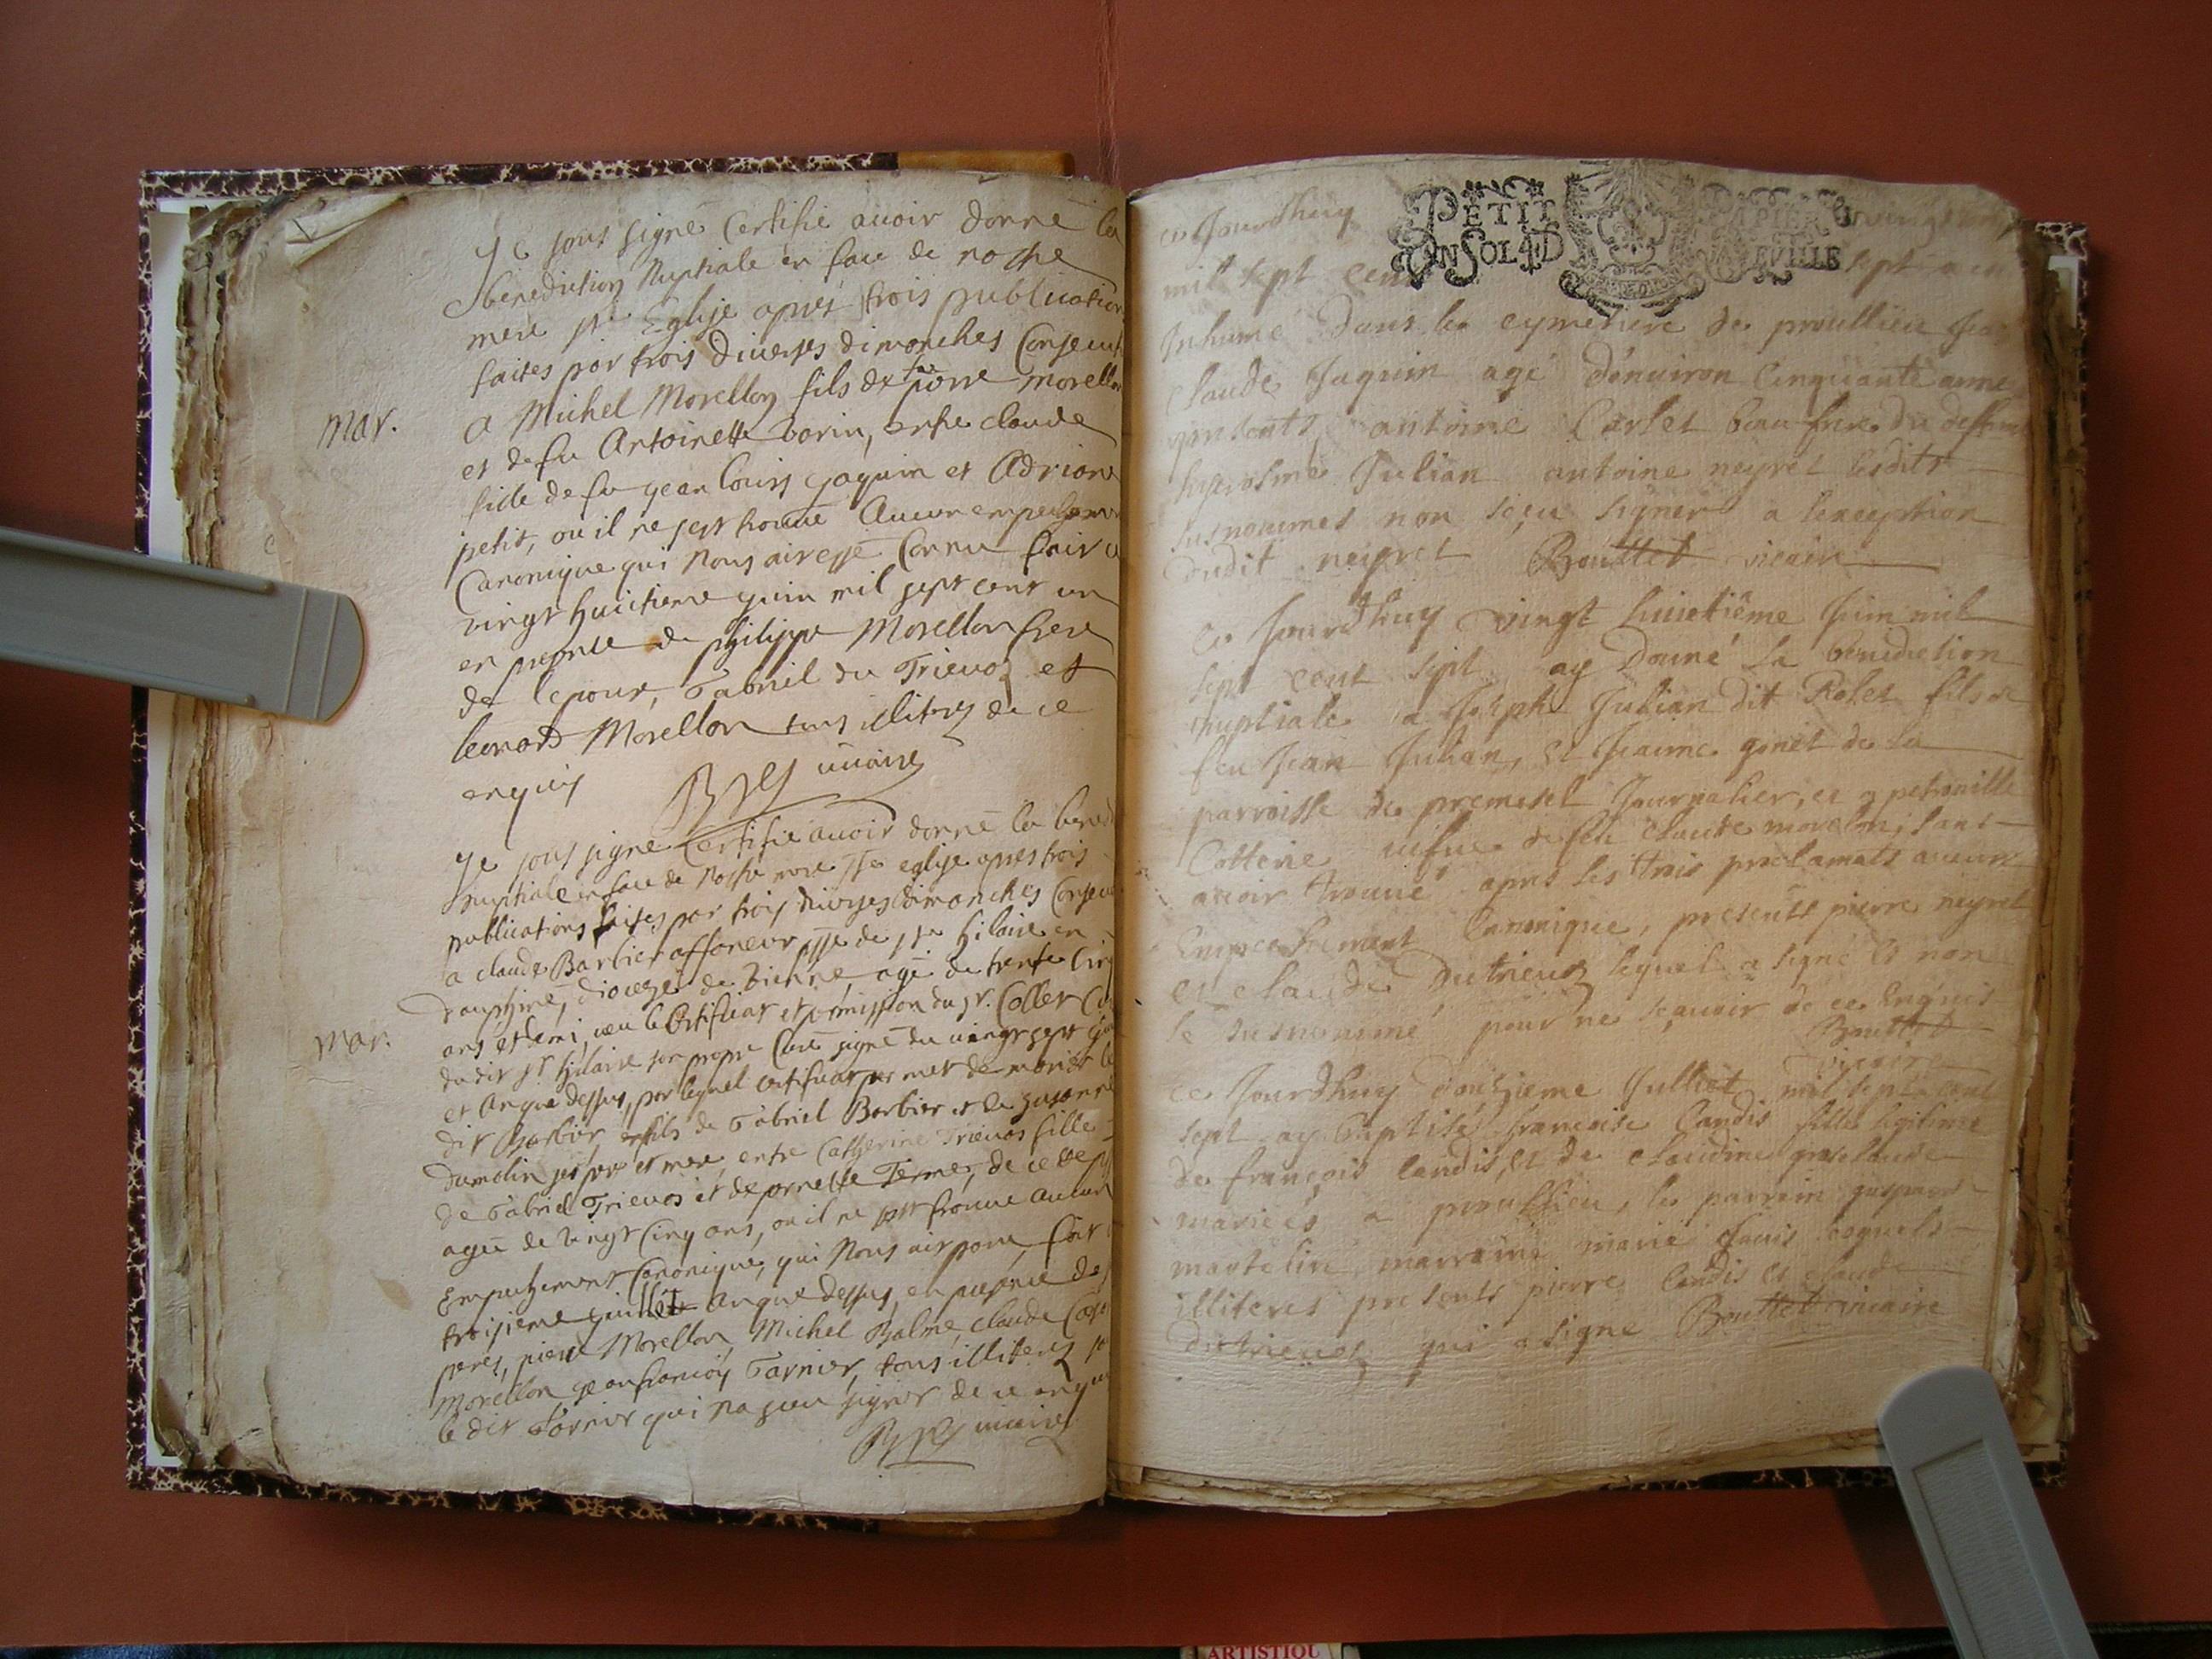 Je sous signé Certifie auoir donné la
benediction Nuptiale en face de nostre
mere ste Eglise aprés trois publication
faites por trois diuerses dimanches Consecut
a Michel Morellon fils de feu pierre morellon
mar.
et de fu Antoinette borin, entre claude
fille de fu gean louis gaquin et Adriane
petit, ou il ne sest trouué Aucun empeschement
Canonique qui nous ait esté Connu fait ce
vingt huictieme guin mil sept cent un
en presence de philippe Morellon frere
de lepoux, Gabriel du Trieuoz et
leonard Morellon tous illitres de ce
enquis uicaire
Je sous signé Certifie auoir donné la bened
nuptiale en face de nostre mere ste eglise apres trois
publications faites por trois diuerses dimanches Consecu
a claude Barbier affaneur psse de st hilaire en
dauphiné, dioceze de Vienne, agé de trente Cinq
mar.
ans et demi, ueu le Certificat et permission du sr. Collet Cu
dudit st hilaire son propre Curé signé du uingt sept guin
et an que dessus, por lequel certificat permet de marier le
dit Barbier fils de Gabriel Barbier et de susanne
dumolin ses pere et mere, entre Catherine Trieuos fille
de Gabriel Trieuos et de pernette Ferme, de cette
agée de vingt Cinq ans, ou il ne sest trouué aucun
Empechement Canonique, qui Nous ait parue, fait
troisieme guillet an que dessus, en presence des
peres, pierre Morellon, Michel Balme, claude
morellon gean françois Garnier, tous illiterés
le dit Garnier qui na sceu signer de ce enquis
uicaire
ce Jourd'huy
PETIT PAPIER
UN SOL 4 D
mil sept cent sept a été
Inhumé dans le cymetiere de proullieu Jean
claude Jaquin agé d'enuiron Cinquante anné
presents antoine Carlet beau frere du deffunt
hierosme Julian antoine neyret lesdits
susnommes non sçeu signer a lexception
dudit neyret Bouttet vicaire
ce Jourd'huy vingt huictième Juin mil
sept cent sept ay donné la benediction
nuptiale a Joseph Julian dit Rolet fils de
feu Jean Julian, et Jeanne ginet de la
parroisse de premesel Journalier, et petronille
Cotterie uefue de feu claude morelon, sans
auoir trouué apres les trois proclamats aucun
Empechement Canonique, presents pierre neyret
et claude dutrieuoz lequel a signé et non
le susnommé pour ne sçauoir de ce Enquis
Bouttet
vicaire
ce Jourd'huy douzieme Julliet mil sept cent
sept ay baptisé françoise Candis fille legitime
de françois Candis, et de claudine grosclaude
mariés a proullieu, le parrain gaspard
martelin marraine marie Janis lequels
illiteres presents pierre Candis et claude
dutrieuos qui a signe Bouttet vicaire
ARTISTIQU